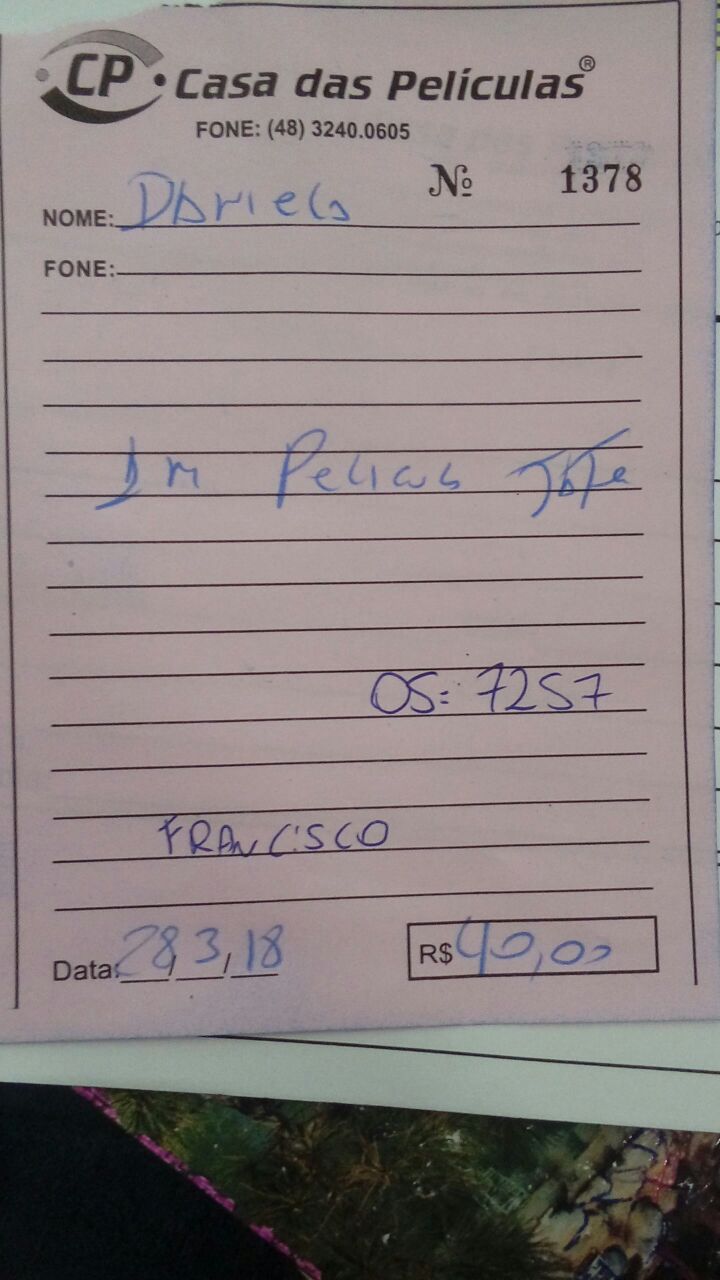 CP Casa das Películas®
FONE: (48) 3240.0605
Nº 1378
NOME:
FONE:
OS: 7257
FRANCISCO
Data: 28/3/18 R$ 40,00